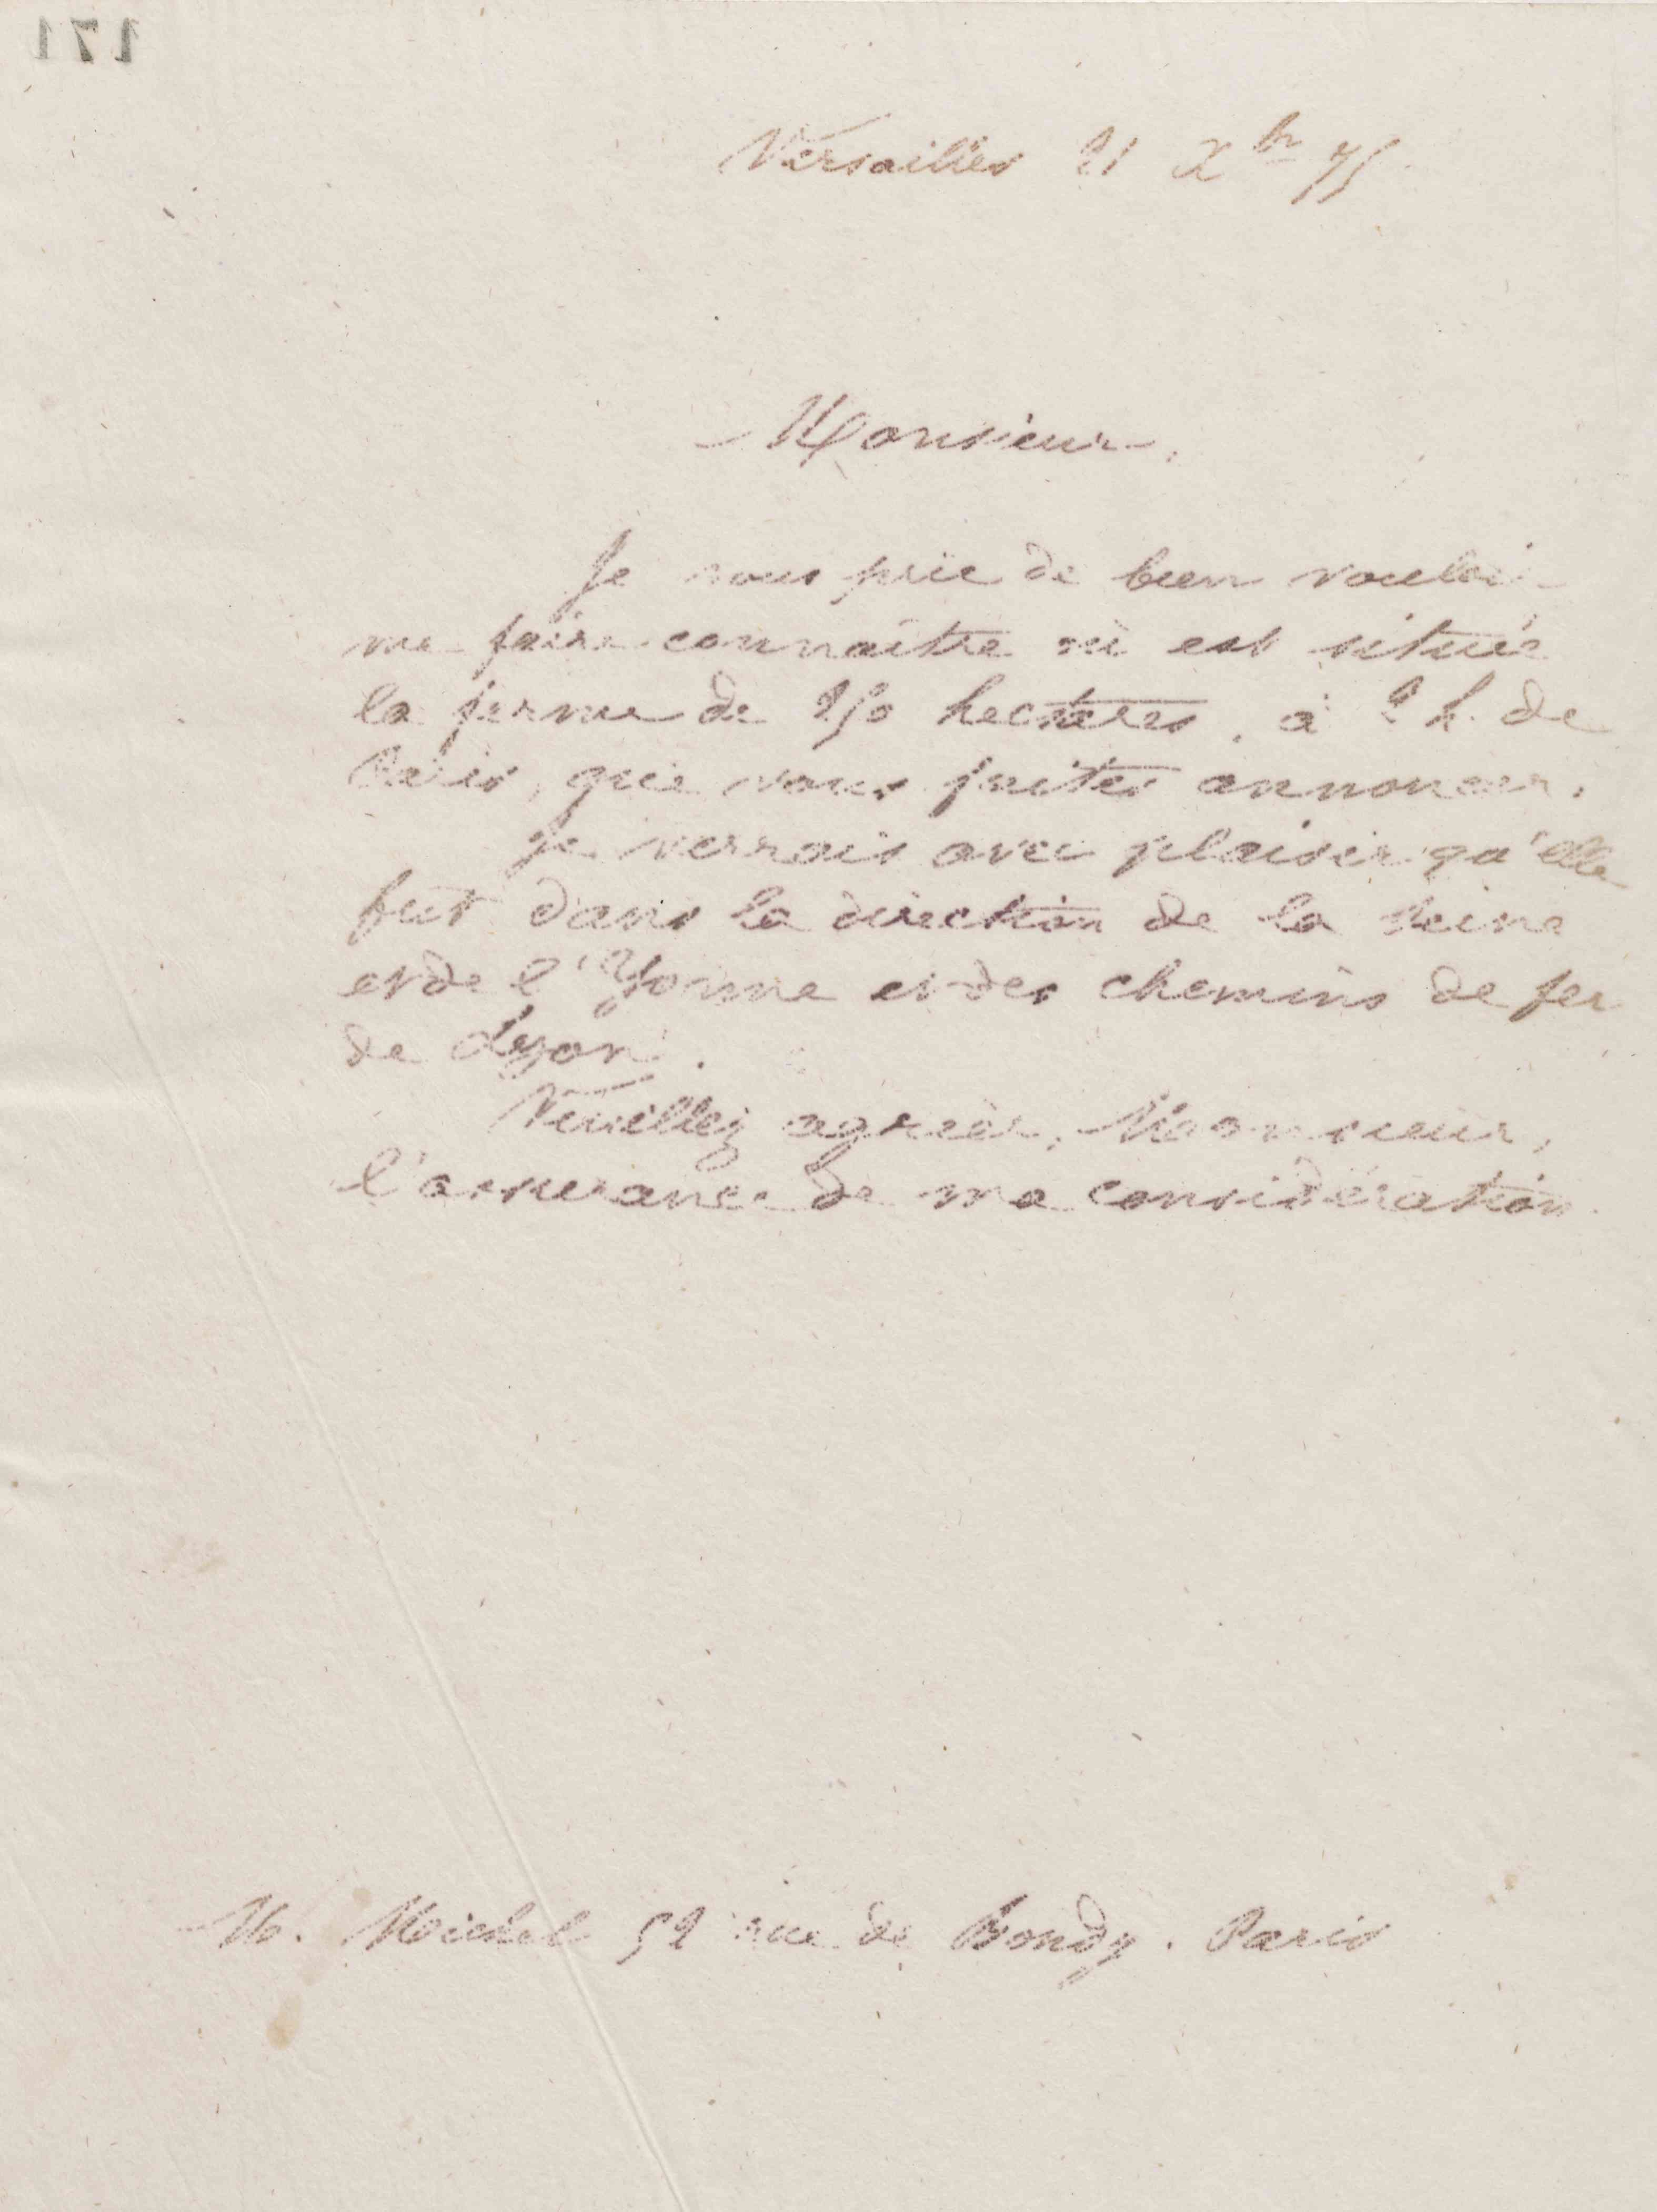 171
Versailles 21 Xbr 75
Monsieur,
Je vous prie de bien vouloir
me faire connaître où est située
la ferme de 250 hectares, à 2 h. de
Paris, que vous faites annoncer.
Je verrais avec plaisir qu'elle
fut dans la direction de la Seine
et de l'Yonne et des chemins de fer
de Lyon.
Veuillez agréer, Monsieur,
l'assurance de ma considération.
M. Michel 52 rue de Bondy. Paris